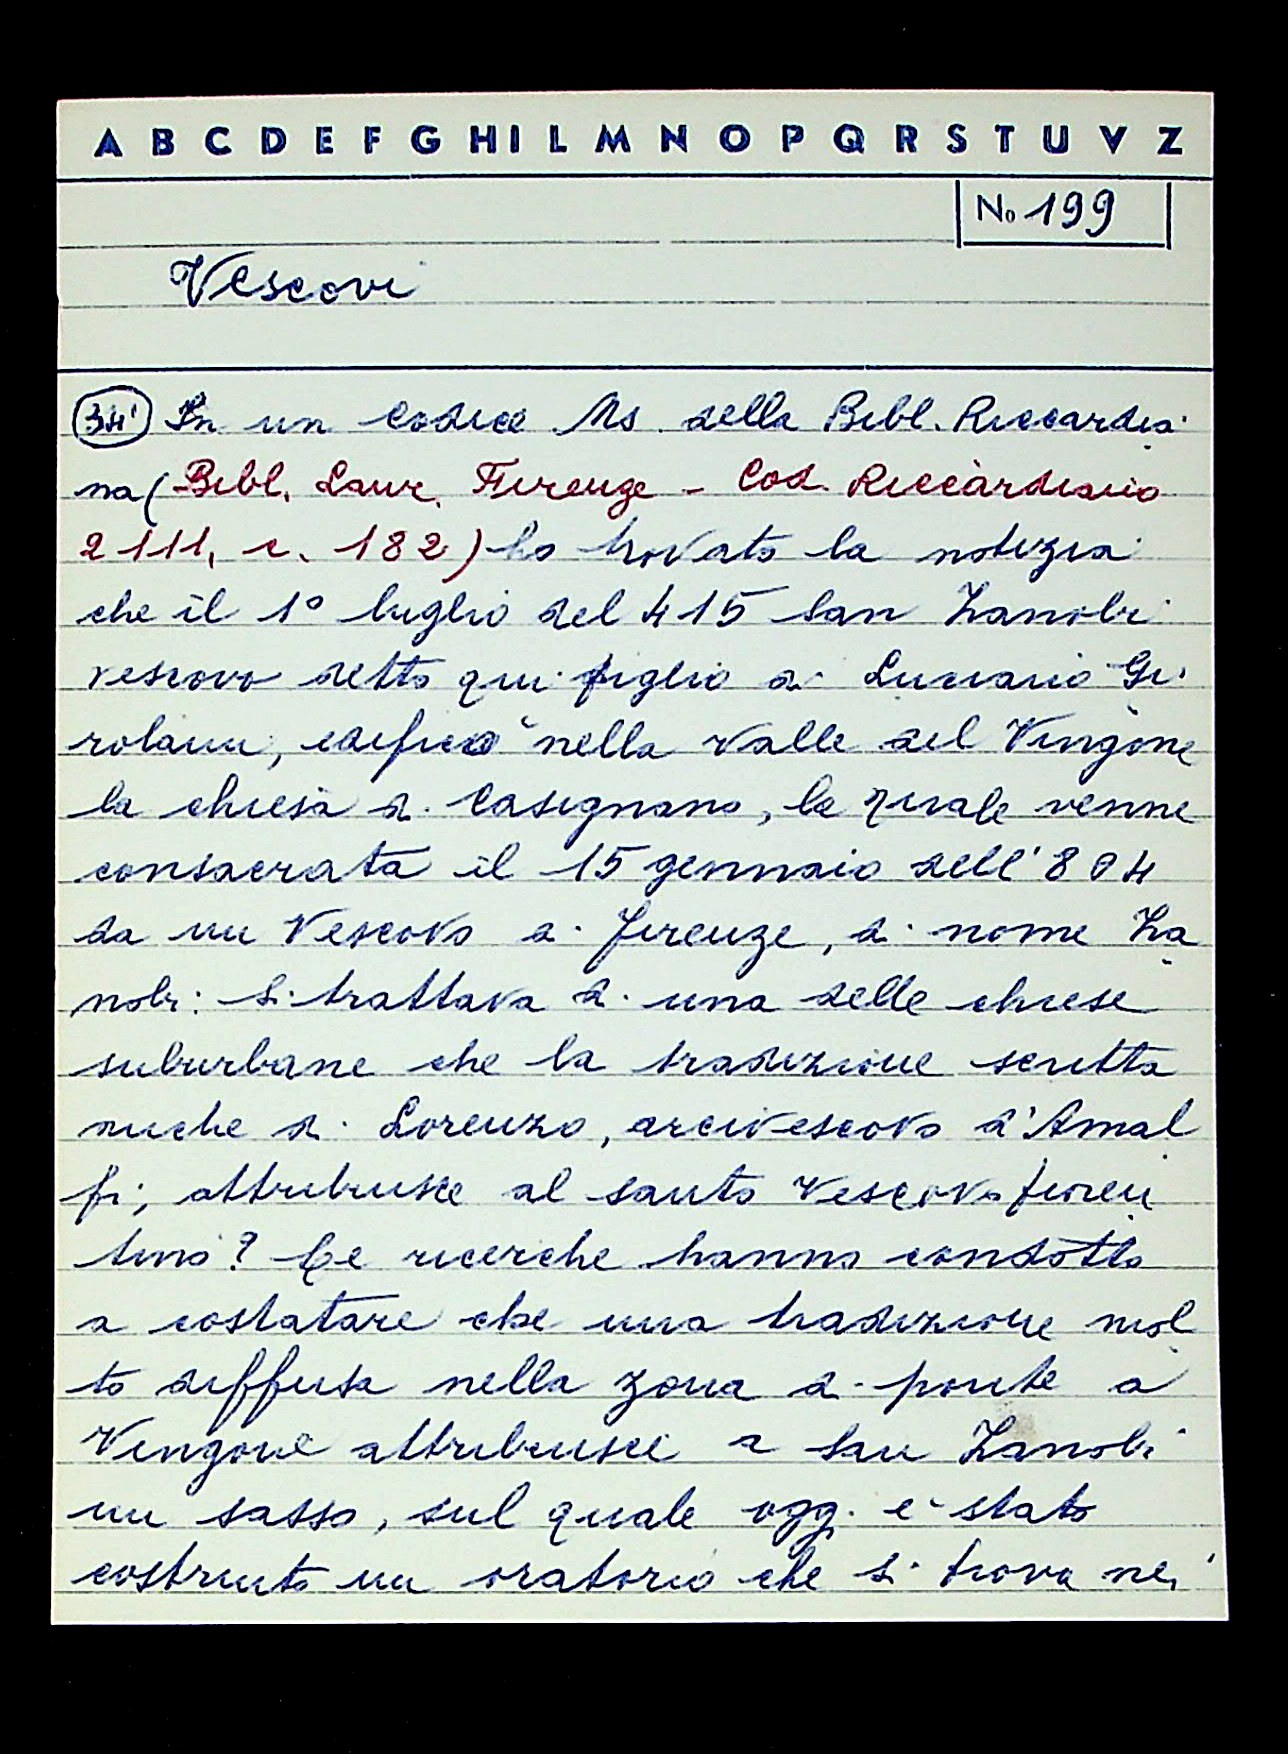 A B C D E F G H I L M N O P Q R S T U V Z
No 199
Vescovi
34' In un codice Ms. della Bibl. Riccardia
na (Bibl. Laur. Firenze - Cod. Riccardiano
2111, c. 182) ho trovato la notizia
che il 1° luglio del 415 San Zanobi
vescovo detto qui figlio di Luciano Gi
rolami, edificò nella valle del Vingone
la chiesa di Casignano, la quale venne
consacrata il 15 gennaio dell'804
da un Vescovo di Firenze, di nome Za
nobi: si trattava di una delle chiese
suburbane che la tradizione scritta
anche di Lorenzo, arcivescovo d'Amal
fi, attribuisce al santo Vescovo fioren
tino? Le ricerche hanno condotto
a costatare che una tradizione mol
to diffusa nella zona di ponte a
Vingone attribuisce a San Zanobi
un sasso, sul quale oggi è stato
costruito un oratorio che si trova nei